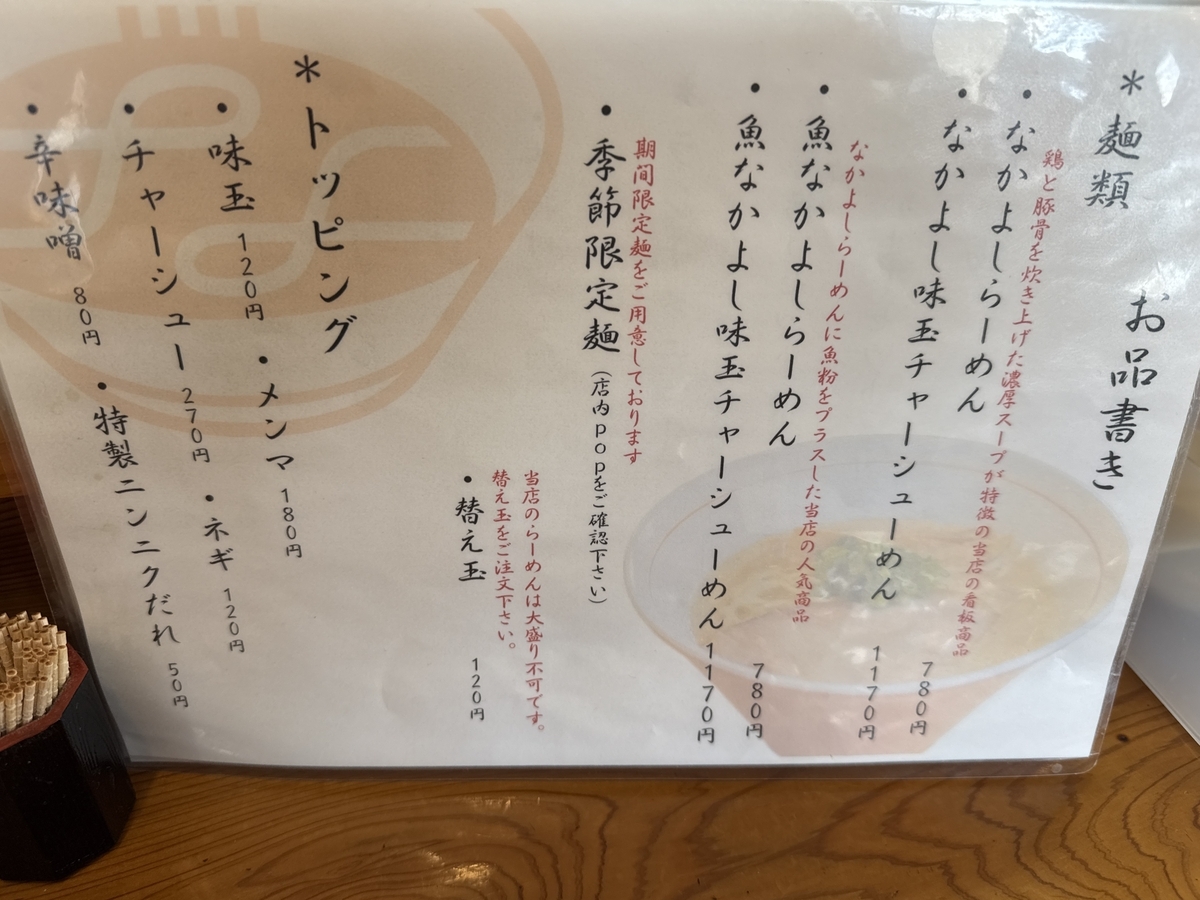 お品書き
＊麺類
鶏と豚骨を炊き上げた濃厚スープが特徴の当店の看板商品
・なかよしらーめん 780円
・なかよし味玉チャーシューめん 1170円
なかよしらーめんに魚粉をプラスした当店の人気商品
・魚なかよしらーめん 780円
・魚なかよし味玉チャーシューめん 1170円
期間限定麺をご用意しております
・季節限定麺（店内popをご確認下さい）
当店のらーめんは大盛り不可です。
替え玉をご注文下さい。
・替え玉 120円
＊トッピング
・味玉 120円 ・メンマ 180円
・チャーシュー 270円 ・ネギ 120円
・辛味噌 80円 ・特製ニンニクだれ 50円